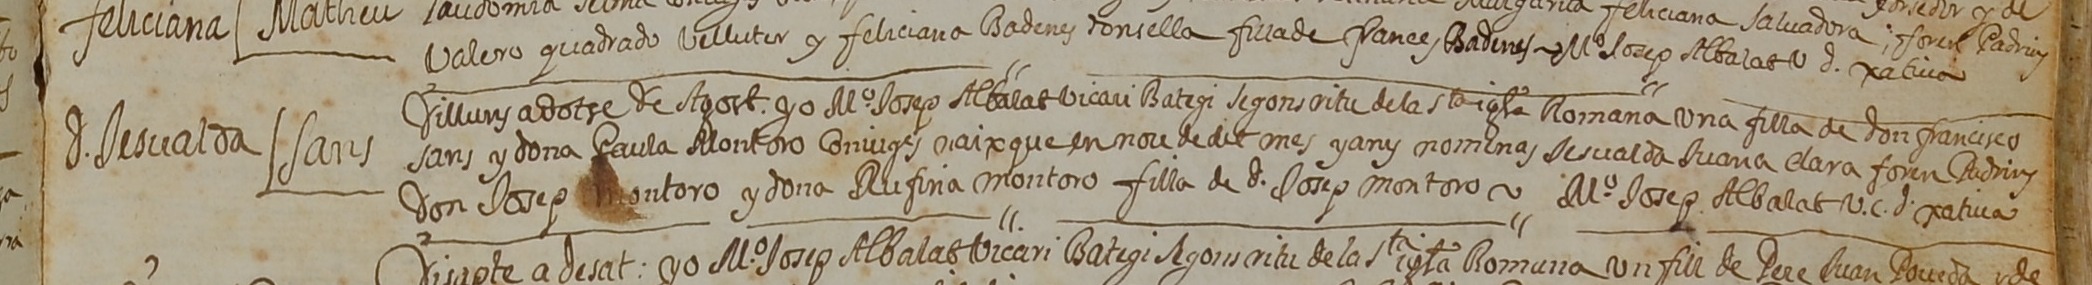 feliciana Matheu
Valero quadrado Velluter y feliciana Badenes donsella filla de frances Badenes ~ Mº Josep Albalat V d. xativa
Dilluns a dotse de Agost. yo Mº Josep Albalat Vicari Bategi segons ritu de la Sta iglª Romana una filla de don francisco
D. Jesualda Sans
Sans y dona Paula Montoro Coniuges naixque en nou de dit mes y any nominas Jesualda Juana Clara foren Padrins
Don Josep Montoro y dona Rufina Montoro filla de d. Josep Montoro ~ Mº Josep Albalat V. c. d. xativa
Disapte a deset: yo Mº Josep Albalat Vicari Bategi segons ritu de la Sta iglª Romana un fill de Pere Juan Poveda y de